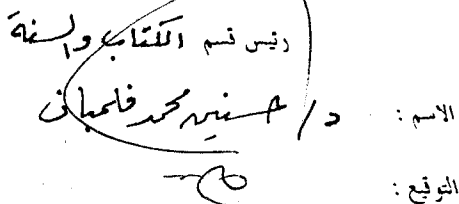 رئيس قسم الكتاب والسنة
الاسم : د/ حسنين محمد فلمبان
التوقيع :